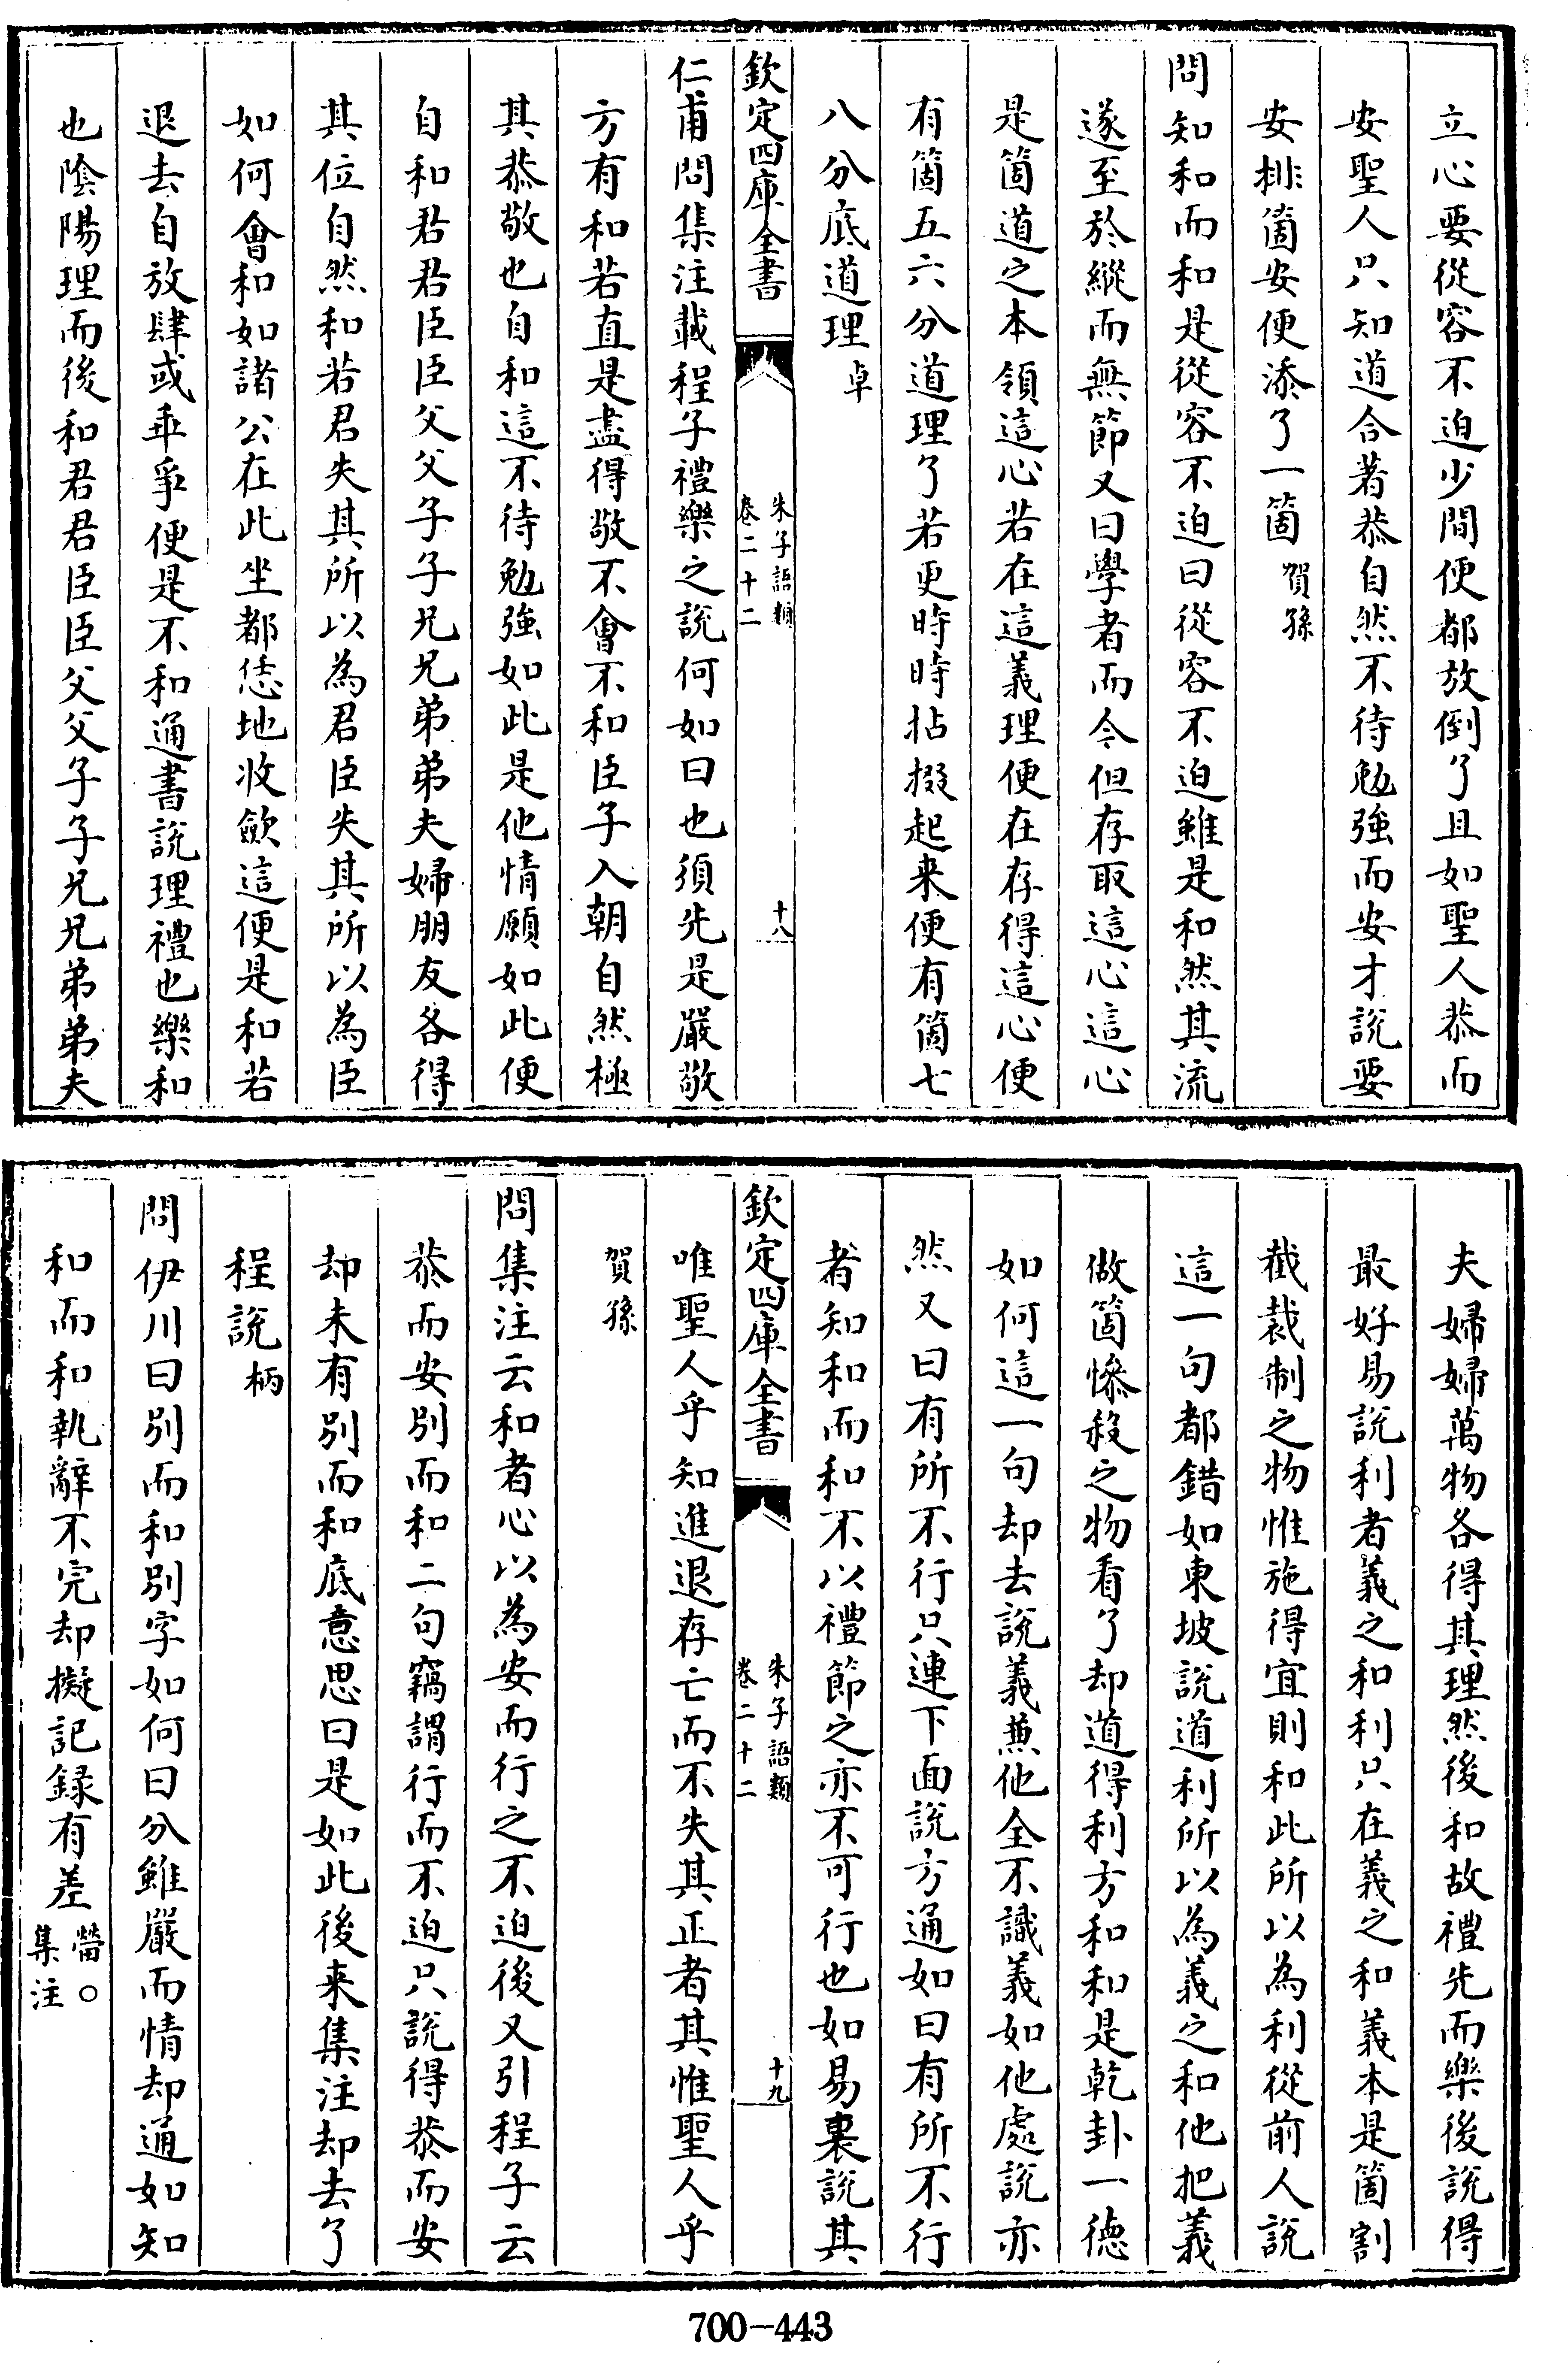 立心要從容不迫少間便都放倒了且如聖人恭而
安聖人只知道合著恭自然不待勉強而安才説要
安排箇安便添了一箇賀孫
問知和而和是從容不迫曰從容不迫雖是和然其流
遂至於縱而無節又曰學者而今但存取這心這心
是箇道之本領這心若在這義理便在存得這心便
有箇五六分道理了若更時時拈掇起来便有箇七
八分底道理卓
欽定四庫全書
朱子語類
卷二十二
十八
仁甫問集注載程子禮樂之説何如曰也須先是嚴敬
方有和若直是盡得敬不會不和臣子入朝自然極
其恭敬也自和這不待勉強如此是他情願如此便
自和君君臣臣父父子子兄兄弟弟夫婦朋友各得
其位自然和若君失其所以為君臣失其所以為臣
如何會和如諸公在此坐都恁地收斂這便是和若
退去自放肆或乖爭便是不和通書説理禮也樂和
也陰陽理而後和君君臣臣父父子子兄兄弟弟夫
夫婦婦萬物各得其理然後和故禮先而樂後説得
最好易説利者義之和利只在義之和義本是箇割
截裁制之物惟施得宜則和此所以為利從前人説
這一句都錯如東坡説道利所以為義之和他把義
做箇慘殺之物看了却道得利方和和是乾卦一德
如何這一句却去説義兼他全不識義如他處説亦
然又曰有所不行只連下面説方通如曰有所不行
者知和而和不以禮節之亦不可行也如易裏説其
欽定四庫全書
朱子語類
卷二十二
十九
唯聖人乎知進退存亡而不失其正者其惟聖人乎
賀孫
問集注云和者心以為安而行之不迫後又引程子云
恭而安別而和二句竊謂行而不迫只説得恭而安
却未有別而和底意思曰是如此後来集注却去了
程説柄
問伊川曰別而和別字如何曰分雖嚴而情却通如知
和而和執辭不完却擬記録有差㽦○
集注
700-443